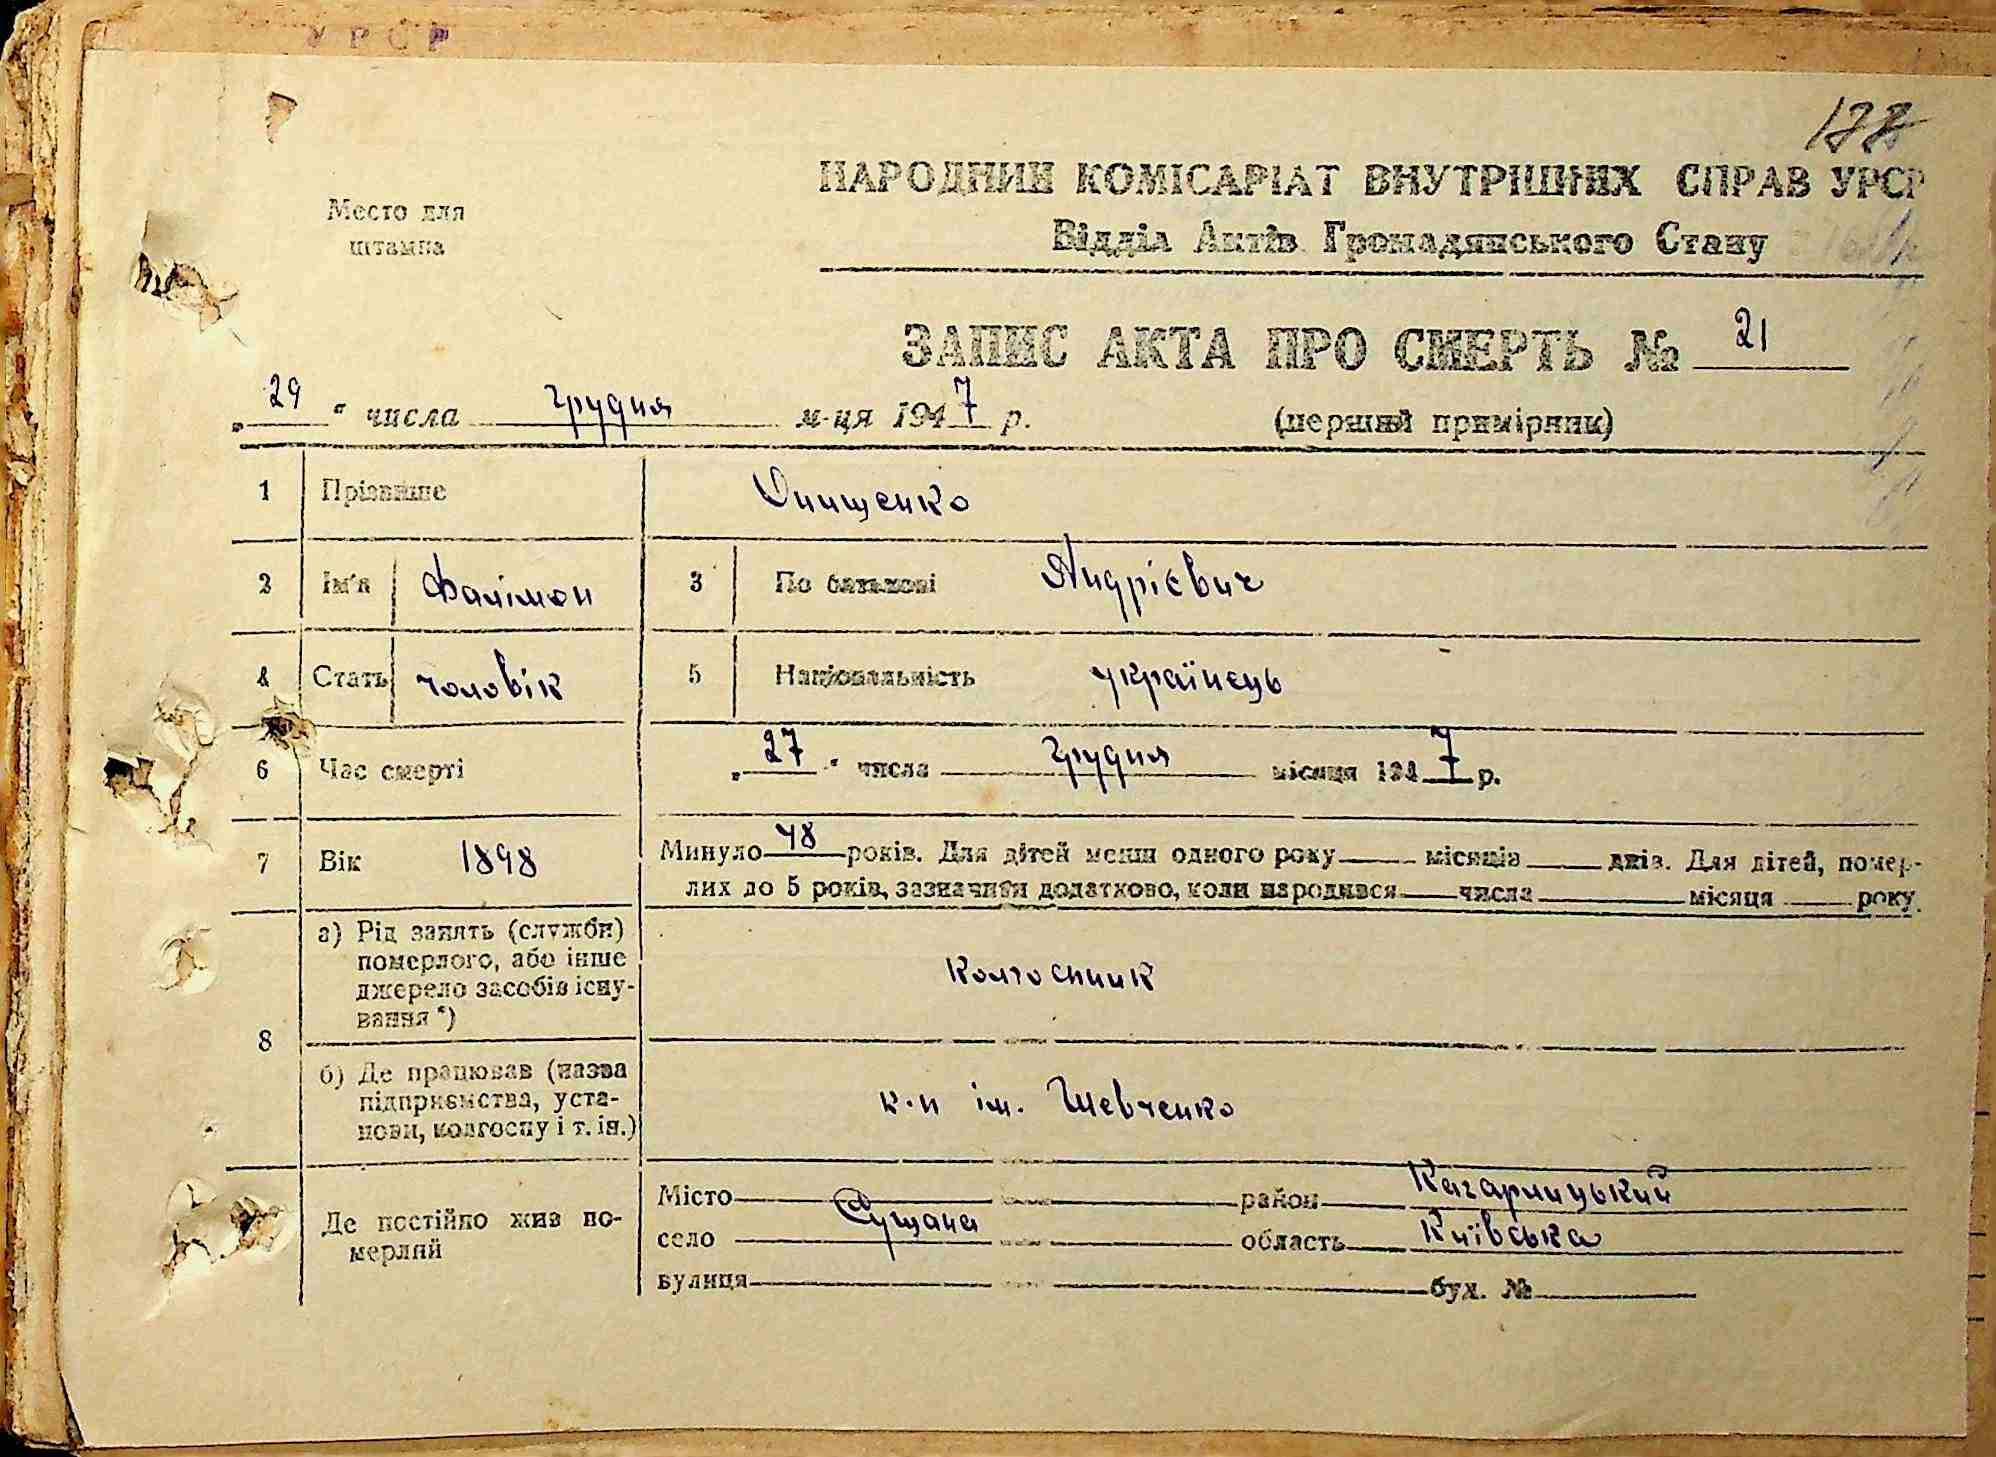 УРСР
177
Место для
штампа
НАРОДНИЙ КОМІСАРІАТ ВНУТРІШНІХ СПРАВ УРСР
Відділ Актів Громадянського Стану
ЗАПИС АКТА ПРО СМЕРТЬ № 21
„29“ числа грудня м-ця 1947 р. (перший примірник)
1 Прізвище Онищенко
2 Ім'я Филімон 3 По батькові Андрієвич
4 Стать чоловік 5 Національність українець
6 Час смерті „27“ числа грудня місяця 1947 р.
7 Вік 1898 Минуло 48 років. Для дітей менш одного року місяців днів. Для дітей, помер-
лих до 5 років, зазначити додатково, коли народився числа місяця року.
8 а) Рід занять (служби)
померлого, або інше
джерело засобів існу-
вання *)
колгоспник
б) Де працював (назва
підприємства, уста-
нови, колгоспу і т. ін.)
к-п ім. Шевченко
Де постійно жив по-
мерлий
Місто район Кагарлицький
село Сущана область Київська
вулиця буд. №